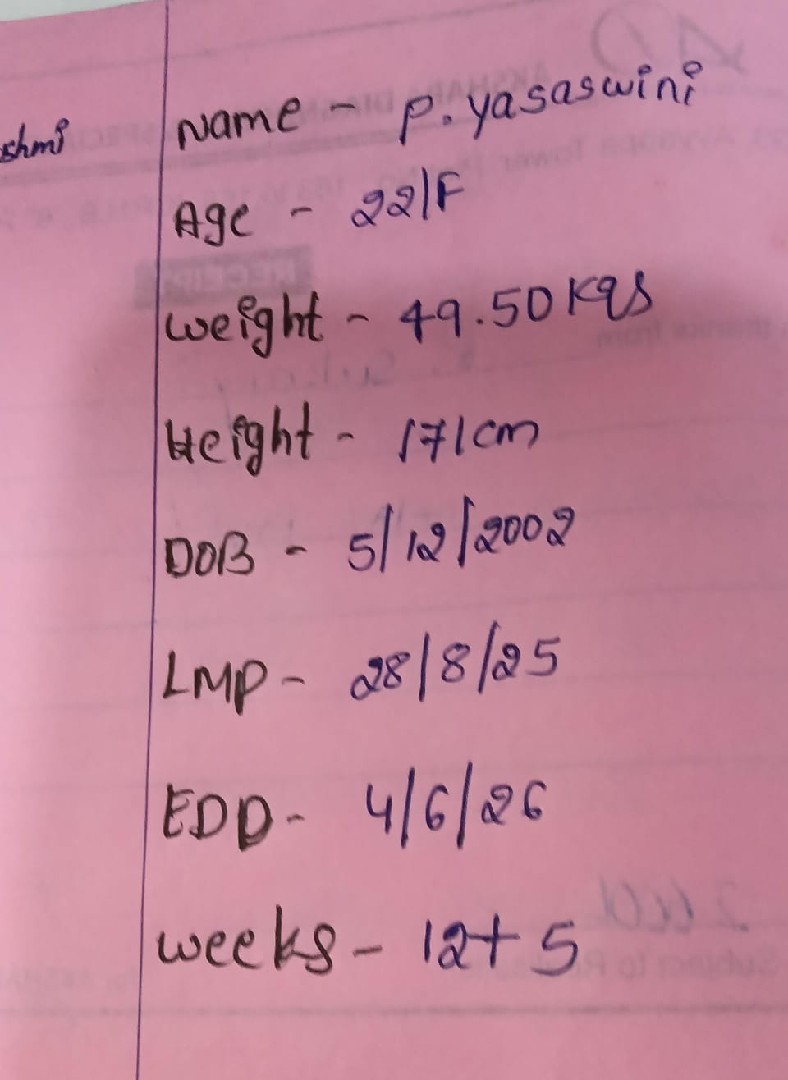 shmi
Name - P. yasaswini
Age - 22/F
weight - 49.50 Kgs
Height - 171 cm
DOB - 5/12/2002
LMP - 28/8/25
EDD - 4/6/26
weeks - 12+5
RECEIPT